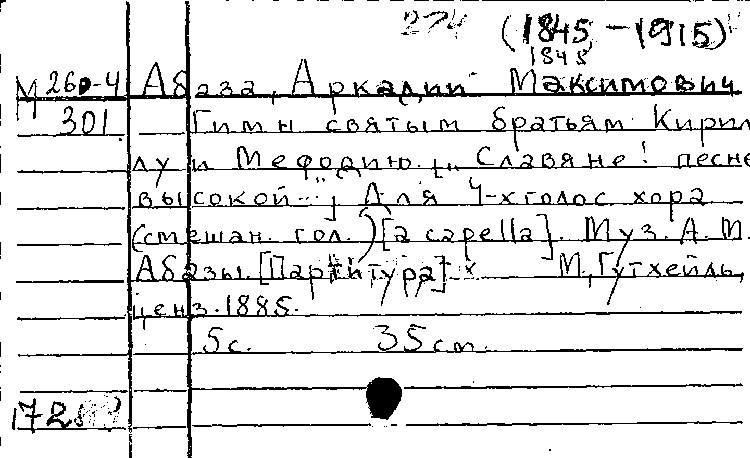 274 (1845 - 1915)
1845
М 260-4 Абаза, Аркадий Максимович
301 Гимн святым братьям Кирил
лу и Мефодию ["Славяне! песне
высокой..."]. Для 4-х голос. хора
(смешан. гол.) [a capella]. Муз. А. М.
Абазы. [Партитура] х М., Гутхейль,
ценз. 1885.
5 с. 35 см.